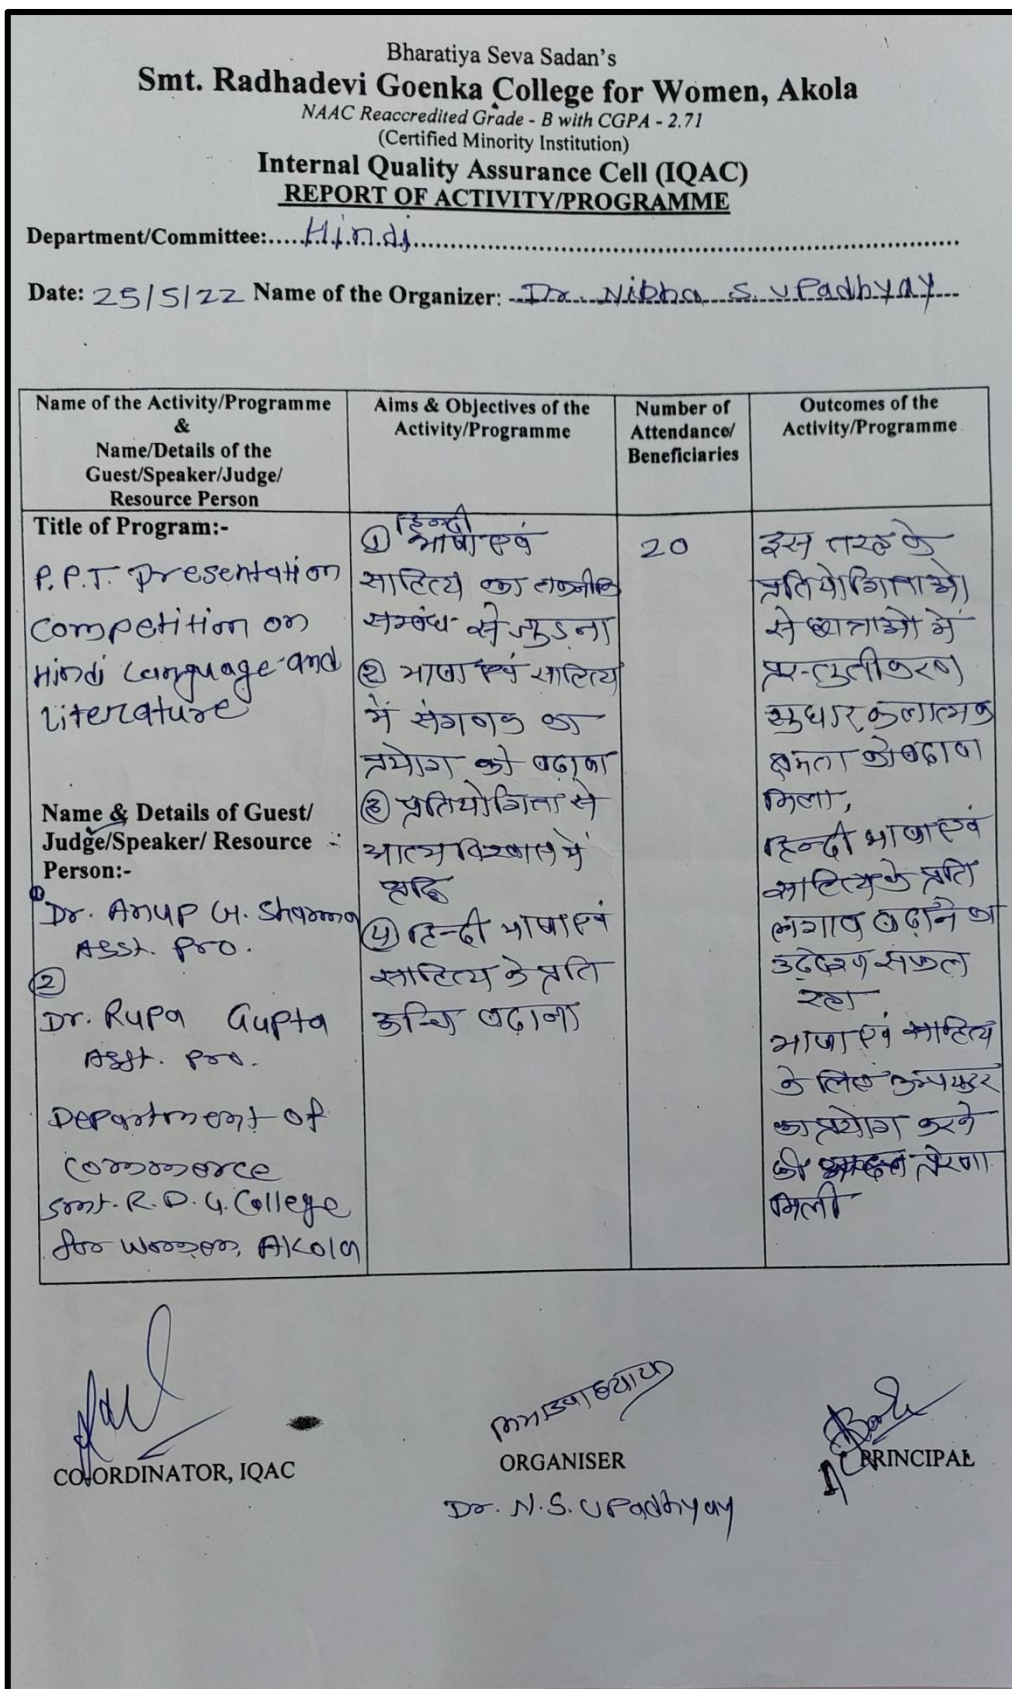 Bharatiya Seva Sadan's
Smt. Radhadevi Goenka College for Women, Akola
NAAC Reaccredited Grade - B with CGPA - 2.71
(Certified Minority Institution)
Internal Quality Assurance Cell (IQAC)
REPORT OF ACTIVITY/PROGRAMME
Department/Committee:.....Hindi.....
Date: 25/5/22 Name of the Organizer: Dr. Nibha S. Upadhyay
Name of the Activity/Programme
&
Name/Details of the
Guest/Speaker/Judge/
Resource Person
Aims & Objectives of the
Activity/Programme
Number of
Attendance/
Beneficiaries
Outcomes of the
Activity/Programme
Title of Program:-
P.P.T. Presentation
Competition on
Hindi Language and
Literature
Name & Details of Guest/
Judge/Speaker/ Resource :
Person:-
① Dr. Anup G. Sharma
Asst. Pro.
②
Dr. Rupa Gupta
Asst. Pro.
Department of
Commerce
Smt. R. D. G. College
for Women, Akola
हिन्दी
① भाषा एवं
साहित्य का तकनीकि
सम्बंध से जुडना
② भाषा एवं साहित्य
में संगणक का
प्रयोग को बढ़ावा
③ प्रतियोगिता से
आत्मविश्वास में
वृद्धि
④ हिन्दी भाषा एवं
साहित्य के प्रति
रूचि बढ़ाना
20
इस तरह के
प्रतियोगिताओ
से छात्राओ में
प्रस्तुतीकरण
सुधार कलात्मक
क्षमता को बढावा
मिला,
हिन्दी भाषा एवं
साहित्य के प्रति
लगाव बढ़ाने का
उद्देश्य सफल
रहा
भाषा एवं साहित्य
के लिए कम्प्युटर
का प्रयोग करने
की प्रेरणा
मिली
CO-ORDINATOR, IQAC
ORGANISER
Dr. N. S. Upadhyay
PRINCIPAL